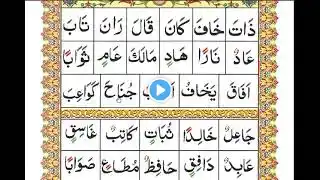 ذَاتَ خَافَ كَانَ قَالَ رَانَ تَابَ
عَادٌ نَارًا هَادٍ مَالَكَ عَامٍ ثَوَابًا
اَفَاقَ يَخَافُ جُنَاحَ كَوَاعِبَ
جَاعِلٌ خَالِدًا ثُبَاتٍ كَاتِبٌ غَاسِقٍ
عَابِدٌ دَافِقٍ حَافِظٌ مُطَاعٍ صَوَابًا